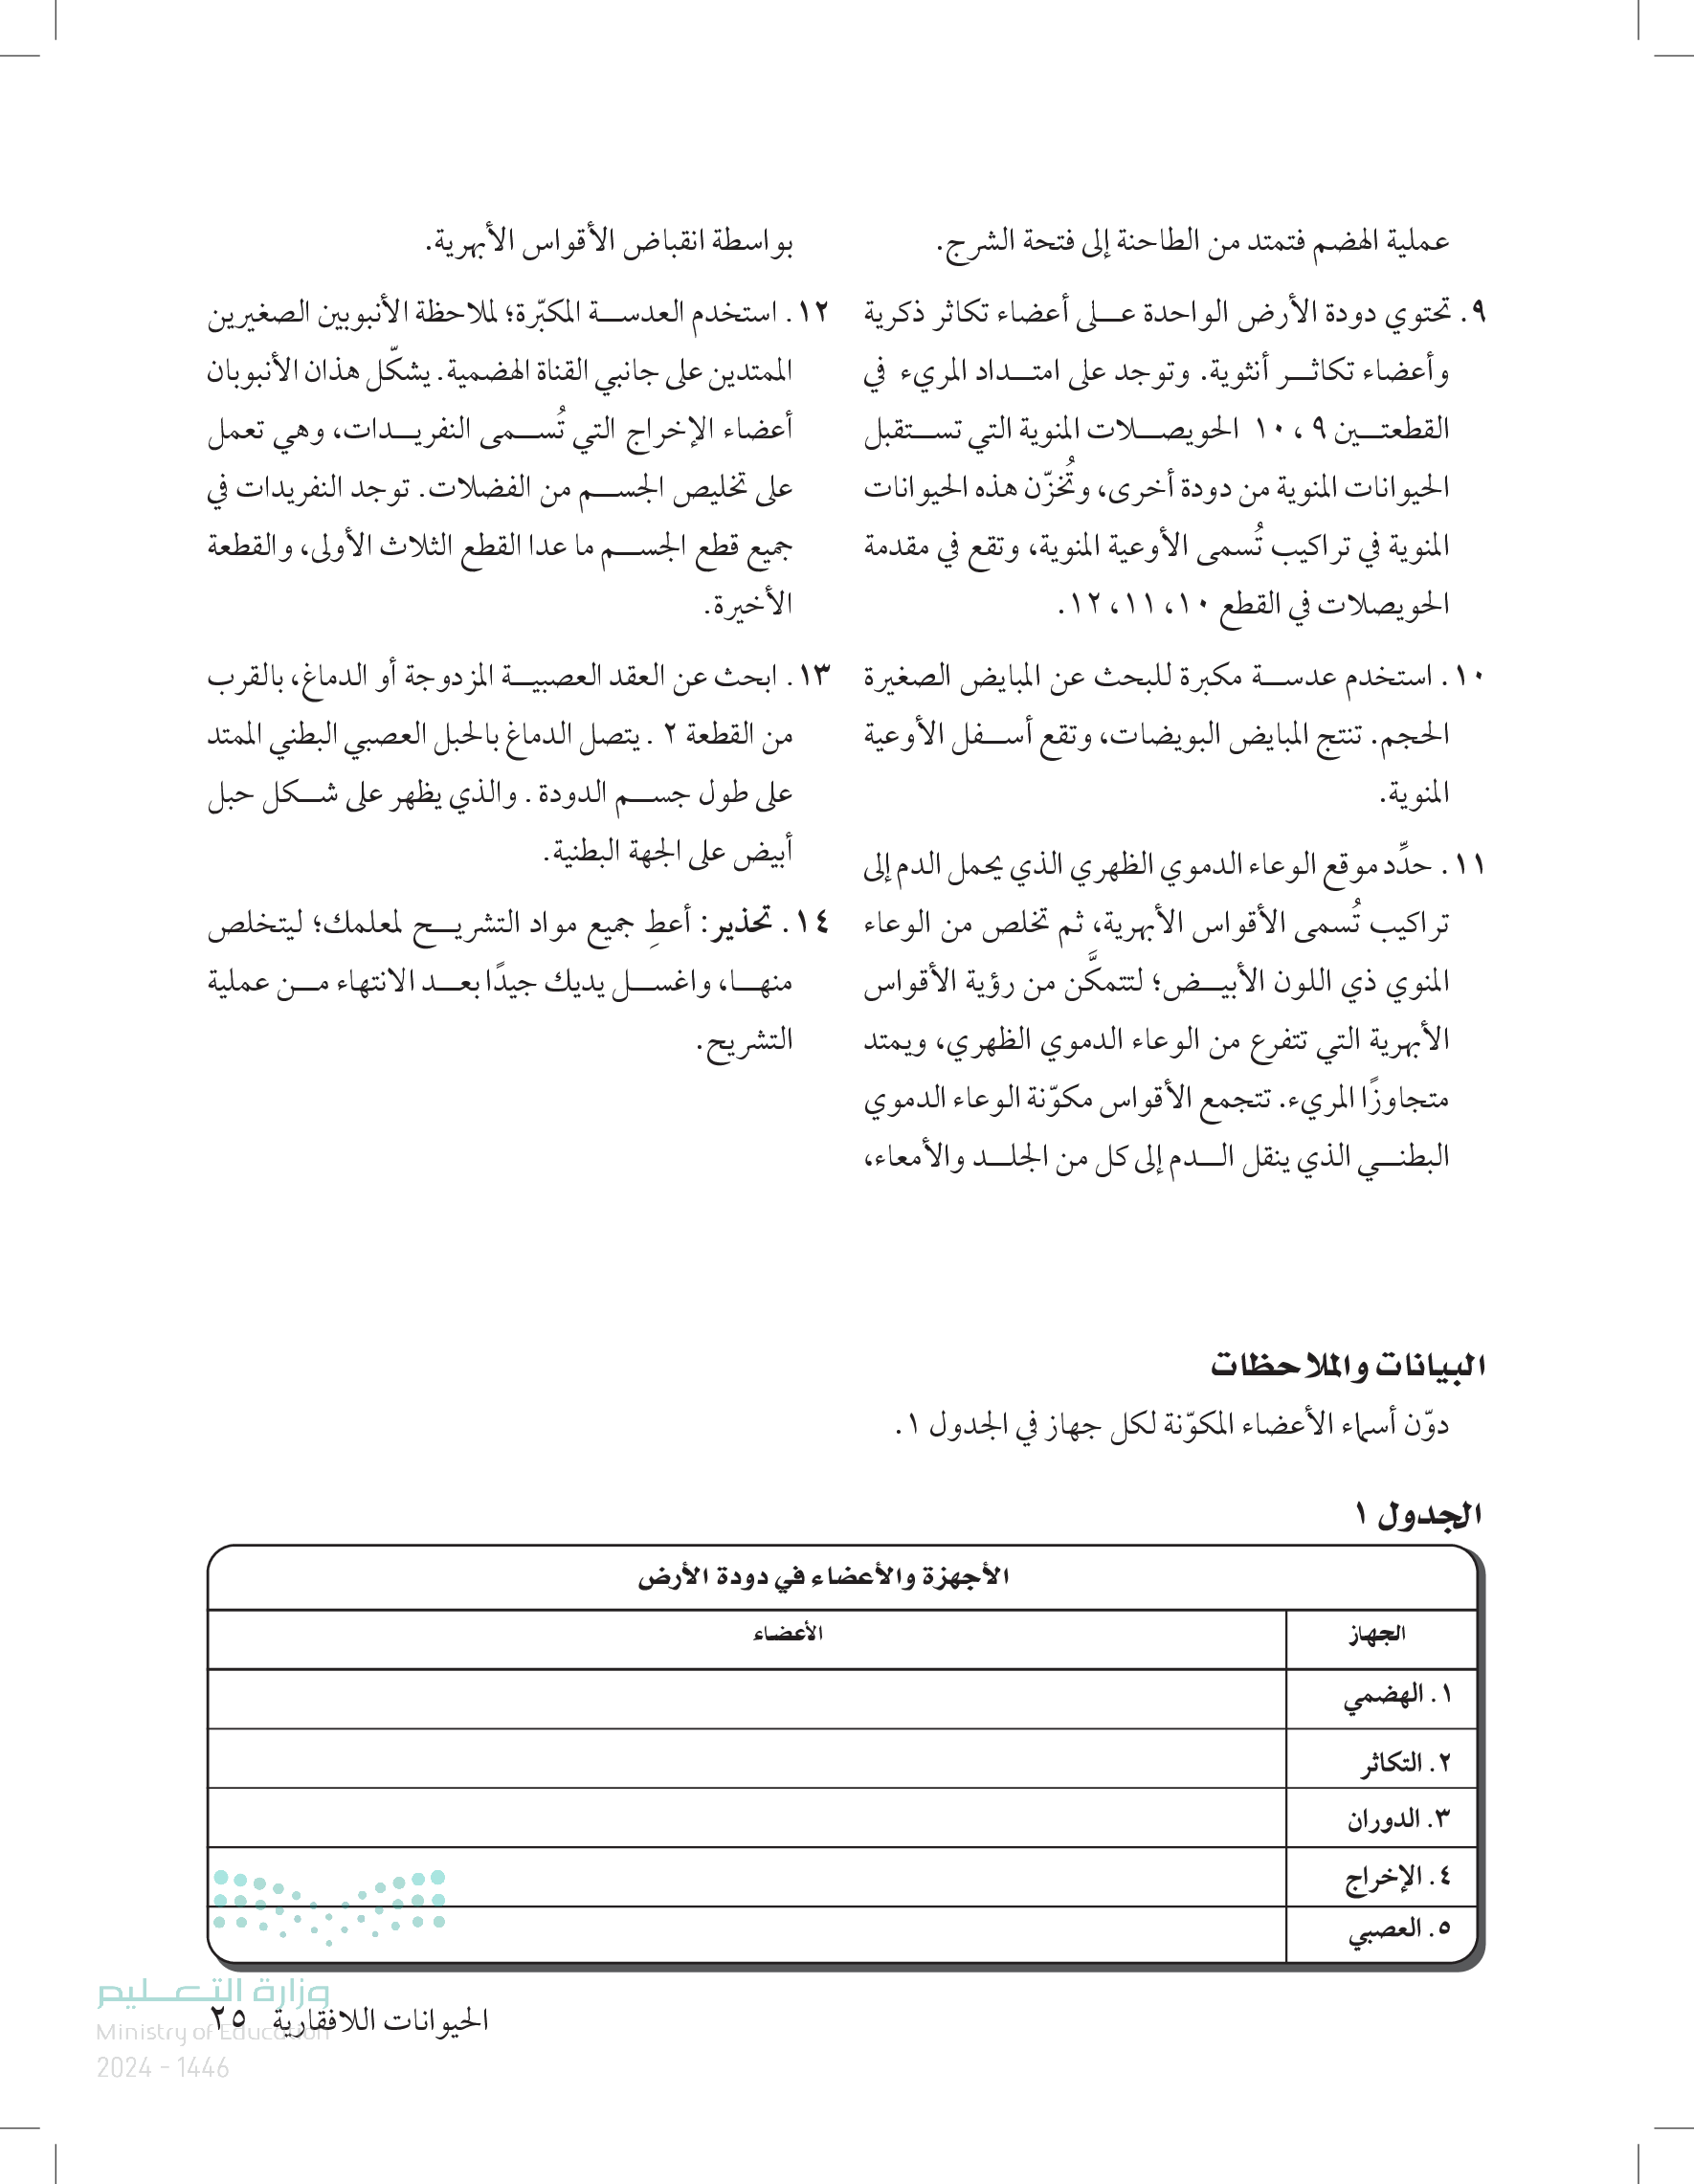 عملية الهضم فتمتد من الطاحنة إلى فتحة الشرج.
٩. تحتوي دودة الأرض الواحدة على أعضاء تكاثر ذكرية
وأعضاء تكاثر أنثوية. وتوجد على امتداد المريء في
القطعتين ٩ ، ١٠ الحويصلات المنوية التي تستقبل
الحيوانات المنوية من دودة أخرى، وتُخزّن هذه الحيوانات
المنوية في تراكيب تُسمى الأوعية المنوية، وتقع في مقدمة
الحويصلات في القطع ١٠، ١١، ١٢.
١٠. استخدم عدسة مكبرة للبحث عن المبايض الصغيرة
الحجم. تنتج المبايض البويضات، وتقع أسفل الأوعية
المنوية.
١١. حدِّد موقع الوعاء الدموي الظهري الذي يحمل الدم إلى
تراكيب تُسمى الأقواس الأبهرية، ثم تخلص من الوعاء
المنوي ذي اللون الأبيض؛ لتتمكَّن من رؤية الأقواس
الأبهرية التي تتفرع من الوعاء الدموي الظهري، ويمتد
متجاوزًا المريء. تتجمع الأقواس مكوّنة الوعاء الدموي
البطني الذي ينقل الدم إلى كل من الجلد والأمعاء،
بواسطة انقباض الأقواس الأبهرية.
١٢. استخدم العدسة المكبّرة؛ لملاحظة الأنبوبين الصغيرين
الممتدين على جانبي القناة الهضمية. يشكّل هذان الأنبوبان
أعضاء الإخراج التي تُسمى النفريدات، وهي تعمل
على تخليص الجسم من الفضلات. توجد النفريدات في
جميع قطع الجسم ما عدا القطع الثلاث الأولى، والقطعة
الأخيرة.
١٣. ابحث عن العقد العصبية المزدوجة أو الدماغ، بالقرب
من القطعة ٢ . يتصل الدماغ بالحبل العصبي البطني الممتد
على طول جسم الدودة . والذي يظهر على شكل حبل
أبيض على الجهة البطنية.
١٤. تحذير: أعطِ جميع مواد التشريح لمعلمك؛ ليتخلص
منها، واغسل يديك جيدًا بعد الانتهاء من عملية
التشريح.
البيانات والملاحظات
دوّن أسماء الأعضاء المكوّنة لكل جهاز في الجدول ١.
الجدول ١
الأجهزة والأعضاء في دودة الأرض
الجهاز الأعضاء
١. الهضمي
٢. التكاثر
٣. الدوران
٤. الإخراج
٥. العصبي
الحيوانات اللافقارية ٢٥
وزارة التعليم
Ministry of Education
2024 - 1446